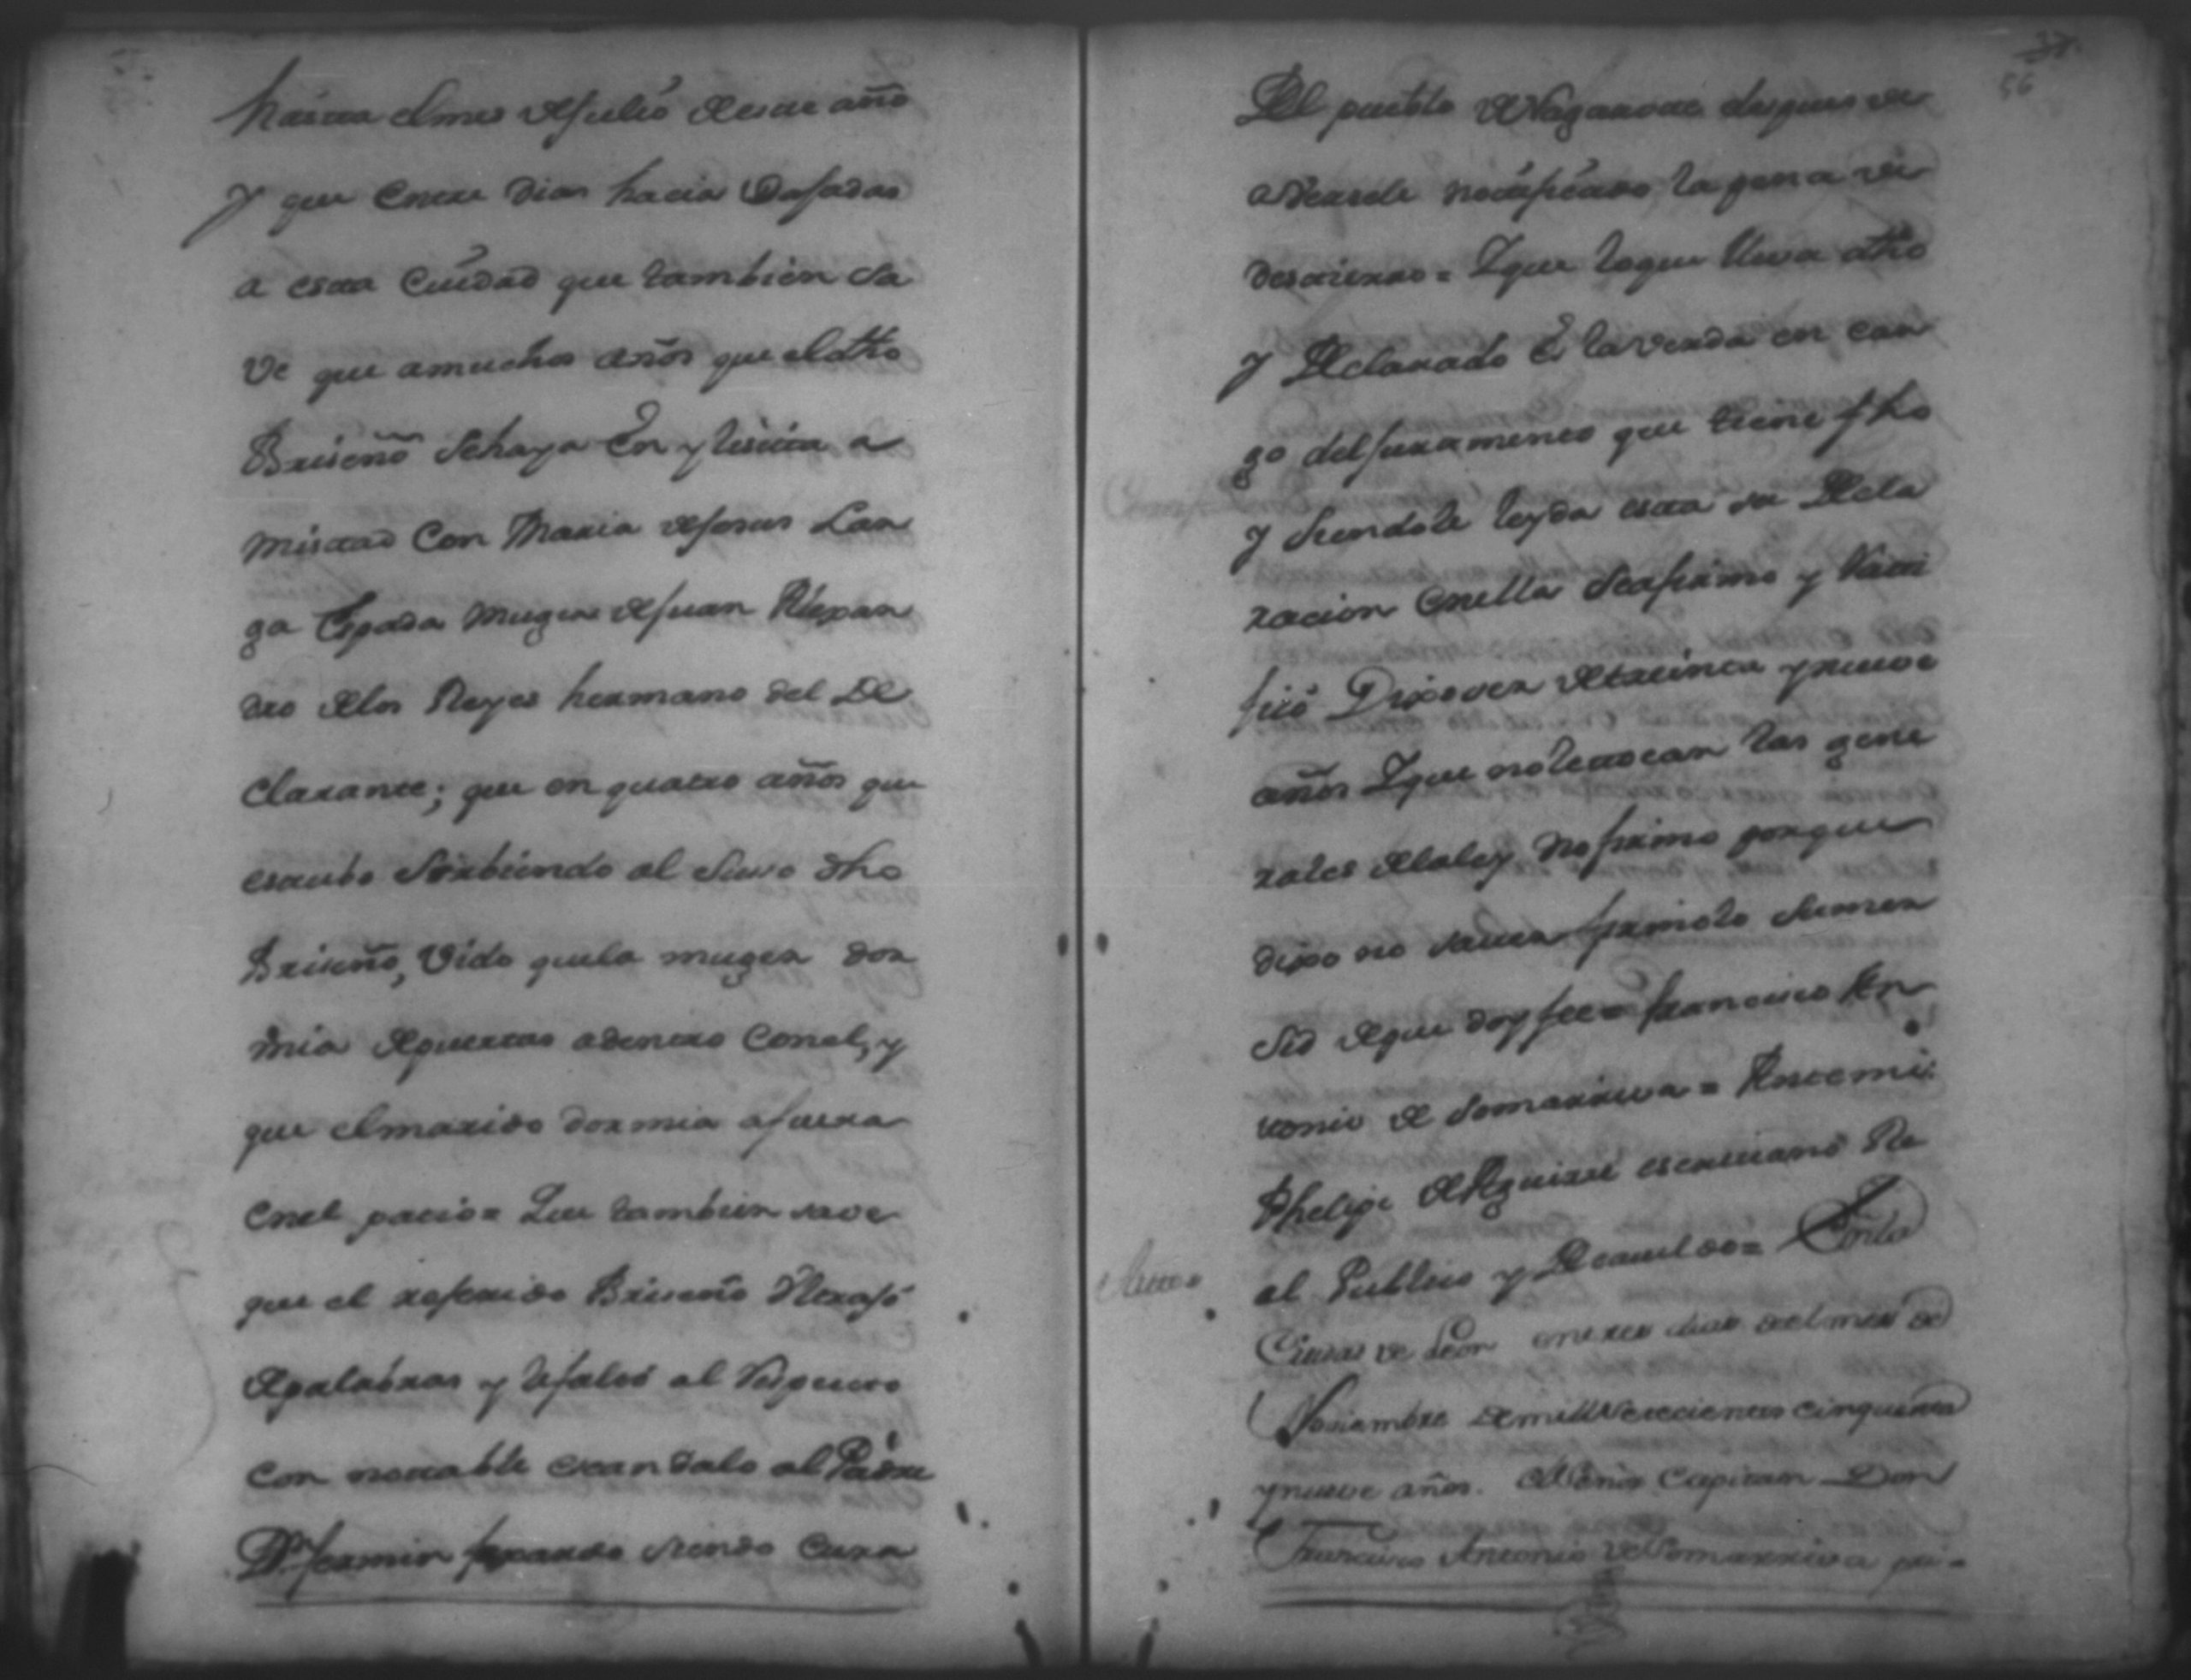 hasta el mes de Julio de este año
y que en este dias hacia Vajadas
a esta Ciudad que tambien sa
ve que a muchos años que el dho
Briseño se haya En ylisita a
mistad Con Maria de Jesus Lar
ga Espada muger de Juan
dro de los Reyes hermano del De
clarante; que en quatro años que
estubo Sirbiendo al suso dho
Briseño, Vido que la muger dor
mia de puertas adentro Con el, y
que el marido dormia afuera
en el patio = Que tambien save
que el referido Briseño Ultrajó
de palabras y
con notable escandalo al Padre
Dn. Fermin siendo Cura
Del pueblo de Nagarote despues de
averle notificado la pena de
destierro = Y que lo que lleva dho
y Declarado Es la verdad en car
go del juramento que tiene fho
y siendole leyda esta su Decla
racion en ella se afirmó y Rati
ficó Dixo ser de treinta y nueve
años Y que no le tocan las gene
rales de la ley No firmo porque
dixo no saver firmolo su mer
sed de que doy fee = Francisco An
tonio de Somarriva = Ante mi
Phelipe de Aguirre escrivano Re
al Publico y De cavildo = En la
Ciudad de Leon en tres dias del mes de
Noviembre de mill setecientos cinquenta
y nueve años. El Señor Capitan Don
Francisco Antonio de Somarriva
56